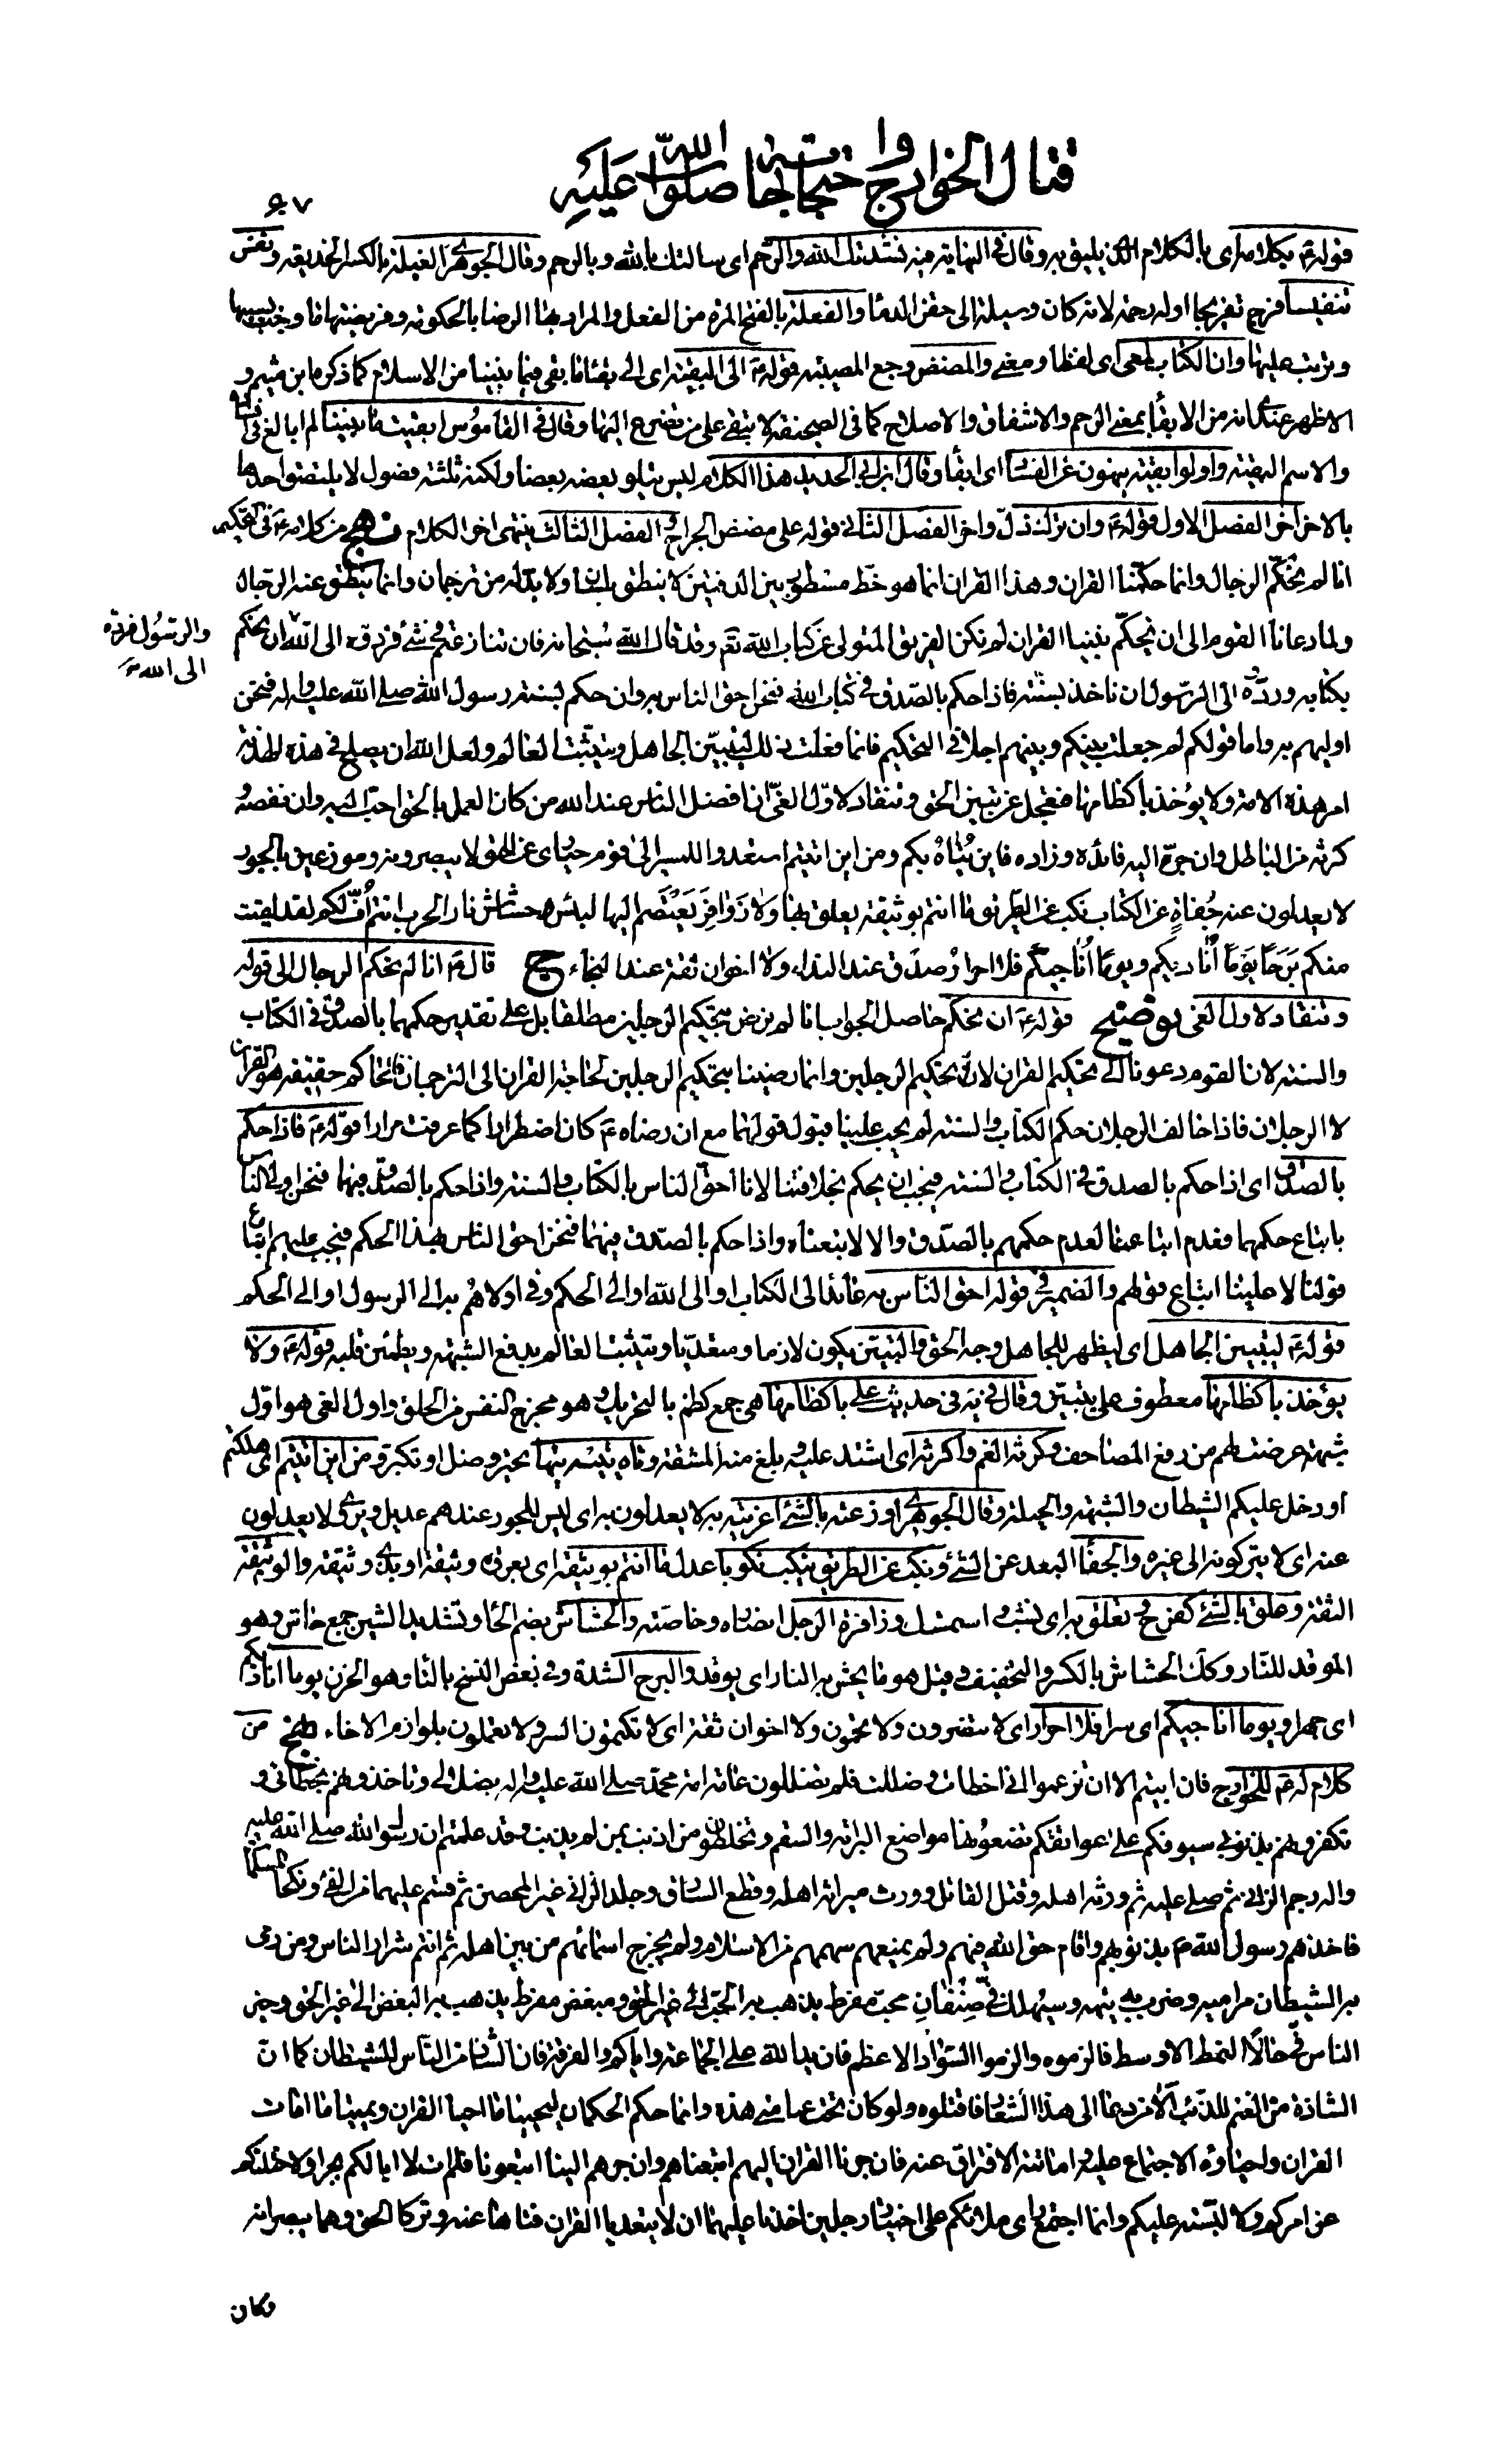 قتال الخوارج واحتجاجاته صلوات الله عليه
٥٩٧
قوله ع بكلامه اى بالكلام الذى يليق به وقال فى النهاية فيه نشدتك الله والرحم اى سالتك بالله وبالرحم وقال الجوهرى الغيلة بالكسر الخديعة ونفس
تنفيسا فرج تفريجا اوله رحمة لانه كان وسيلة الى حقن الدماء والفعلة بالفتح المرة من الفعل والمراد بها الرضا بالحكومة وفريضتها ما وجب بسببها
وترتب عليها وان الكتاب لمعى اى لفظا ومعنى والمضض وجع المصيبة قوله ع الى البقية اى الى بقاء ما بقى فيما بيننا من الاسلام كما ذكره ابن ميثم و
الاظهر عندى انه من الابقاء بمعنى الرحم والاشفاق والاصلاح كما فى الصحيفة لا تبقى على من تضرع اليها وقال فى القاموس ابقيت ما بيننا لم ابالغ فى افساده
والاسم البقية واولوا بقية ينهون عن الفساد اى ابقاء وقال ابن ابى الحديد هذا الكلام ليس يتلو بعضه بعضا ولكنه ثلثة فصول لا يلتصق احدها
بالاخر اخر الفصل الاول قوله ع وان ترك ذل واخر الفصل الثانى قوله على مضض الجراح والفصل الثالث ينتهى اخر الكلام نهج من كلامه ع فى التحكيم
انا لم نحكّم الرجال وانما حكّمنا القران وهذا القران انما هو خطّ مسطور بين الدفتين لا ينطق بلسان ولا بدّ له من ترجمان وانما ينطق عنه الرجال
ولما دعانا القوم الى ان نحكّم بيننا القران لم نكن الفريق المتولى عن كتاب الله تع وقد قال الله سبحانه فان تنازعتم فى شئ فردوه الى الله ان نحكم
والرسول فرده الى الله
بكتابه وردّه الى الرسول ان ناخذ بسنّته فاذا حكم بالصّدق فى كتاب الله فنحن احق الناس به وان حكم بسنة رسول الله صلى الله عليه واله فنحن
اوليهم به واما قولكم لم جعلت بينكم وبينهم اجلا فى التحكيم فانما فعلت ذلك ليتبيّن الجاهل ويتثبّت العالم ولعل الله ان يصلح فى هذه الهدنة
امر هذه الامة ولا يؤخذ باكظامها فتعجل عن تبين الحق وتنقاد لاوّل الغىّ ان افضل الناس عند الله من كان العمل بالحق احبّ اليه وان نقصه و
كرثه من الباطل وان جرّ اليه فائدة وزاده فاين يُتاهُ بكم ومن اين اتيتم استعدوا للمسير الى قوم حيارى عن الحق لا يبصرونه وموزعين بالجور
لا يعدلون عنه جُفاةٍ عن الكتاب نكب عن الطريق ما انتم بوثيقة يعلق بها ولا زَوافِرَ يُعْتَصَم اليها لبئس حشاش نار الحرب انتم اُفّ لكم لقد لقيت
منكم بَرَحًا يَوْمًا اُناديكم ويومًا اُناجيكم فلا احرار صدق عند النداء ولا اخوان ثقة عند النجاء ج قال ع انا لم نحكم الرجال الى قوله
وتنقاد لاول الغى توضيح قوله ع ان نحكم حاصل الجواب انا لم نرض بتحكيم الرجلين مطلقا بل على تقدير حكمهما بالصدق فى الكتاب
والسنة لان القوم دعونا الى تحكيم القران لا الى تحكيم الرجلين وانما رضينا بتحكيم الرجلين لحاجة القران الى الترجمان فالحاكم حقيقة هو القران
لا الرجلان فاذا خالف الرجلان حكم الكتاب والسنة لم يجب علينا قبول قولهما مع ان رضاه ع كان اضطرارا كما عرفت مرارا قوله ع فاذا حكم
بالصدق اى اذا حكم بالصدق فى الكتاب والسنة فيجب ان يحكم بخلافتنا لانا احق الناس بالكتاب والسنة واذا حكم بالصدق فيهما فنحن اولى الناس
باتباع حكمهما فعدم اتباعنا لعدم حكمهم بالصّدق والا لاتبعناه واذا حكم بالصّدق فيهما فنحن احق الناس بهذا الحكم فيجب عليهم اتباع
قولنا لا علينا اتباع قولهم والضمير فى قوله احق الناس به عائد الى الكتاب او الى الله او الى الحكم وفى اولاهم به الى الرسول او الى الحكم
قوله ع ليتبين الجاهل اى ليظهر للجاهل وجه الحق والتبيّن يكون لازما ومتعدّيا ويتثبت العالم بدفع الشبهة ويطمئن قلبه قوله ع ولا
يؤخذ باكظامها معطوف على يتبيّن وقال فى يه فى حديث على باكظامها هى جمع كظم بالتحريك وهو مخرج النفس من الحلق واول الغى هو اوّل
شبهة عرضت لهم من رفع المصاحف وكرثه الغم واكرثه اى اشتد عليه وبلغ منه المشقة وتاه يتيه تيها تحير وضل او تكبر ومن اين اتيتم اى هلكتم
او دخل عليكم الشيطان والشبهة والحيلة وقال الجوهرى اوزعته بالشئ اغريته به لا يعدلون به اى ليس للجور عندهم عديل ويروى لا يعدلون
عنه اى لا يتركونه الى غيره والجفاء البعد عن الشئ ونكب عن الطريق ينكب نكوبا عدل ما انتم بوثيقة اى بعروة وثيقة او بذى وثيقة والوثيقة
الثقة وعلق بالشئ كفرح وتعلق به اى نشب واستمسك وزافرة الرجل انصاره وخاصته والحشاش بضم الحاء وتشديد الشين جمع حاش وهو
الموقد للنّار وكذلك الحشاش بالكسر والتخفيف وقيل هو ما يحش به النار اى يوقد والبرح الشدة وفى بعض النسخ بالتاء وهو الحزن يوما اناديكم
اى جهرا ويوما اناجيكم اى سرا فلا احرار اى لا تنصرون ولا تحمون ولا اخوان ثقة اى لا تكتمون السر ولا تعملون بلوازم الاخاء نهج من
كلام له ع للخوارج فان ابيتم الا ان تزعموا انى اخطات وضللت فلم تضللون عامة امة محمد صلى الله عليه واله بضلالى وتاخذونهم بخطائى و
تكفرونهم بذنوبى سيوفكم على عواتقكم تضعُونها مواضع البراءة والسقم وتخلطون من اذنب بمن لم يذنب وقد علمتم ان رسول الله صلى الله عليه
واله رجم الزانى ثم صلى عليه ثم ورثه اهله وقتل القاتل وورث ميراثه اهله وقطع السارق وجلد الزانى غير المحصن ثم قسم عليهما من الفئ ونكحا المسلمات
فاخذهم رسول الله ص بذنوبهم واقام حق الله فيهم ولم يمنعهم سهمهم من الاسلام ولم يخرج اسمائهم من بين اهله ثم انتم شرار الناس ومن رمى
به الشيطان مراميه وضرب به تيهه وسيهلك فىّ صِنْفانِ محبّ مفرط يذهب به الحبّ الى غير الحق ومبغض مفرط يذهب به البغض الى غير الحق وخير
الناس فىّ حالًا النمط الاوسط فالزموه والزموا السّواد الاعظم فان يد الله على الجماعة واياكم والفرقة فان الشاذ من النّاس للشيطان كما انّ
الشاذة من الغنم للذئب الا من دعا الى هذا الشعار فاقتلوه ولو كان تحت عمامتى هذه وانما حكم الحكمان ليحييا ما احيا القران ويميتا ما امات
القران واحياؤه الاجتماع عليه واماتته الافتراق عنه فان جرنا القران اليهم اتبعناهم وان جرهم الينا اتبعونا فلم ات لا ابا لكم بجرا ولا ختلتكم
عن امركم ولا لبّسته عليكم وانما اجتمع راى ملائكم على اختيار رجلين اخذنا عليهما ان لا يتعديا القران فتاها عنه وتركا الحق وهما يبصرانه
وكان